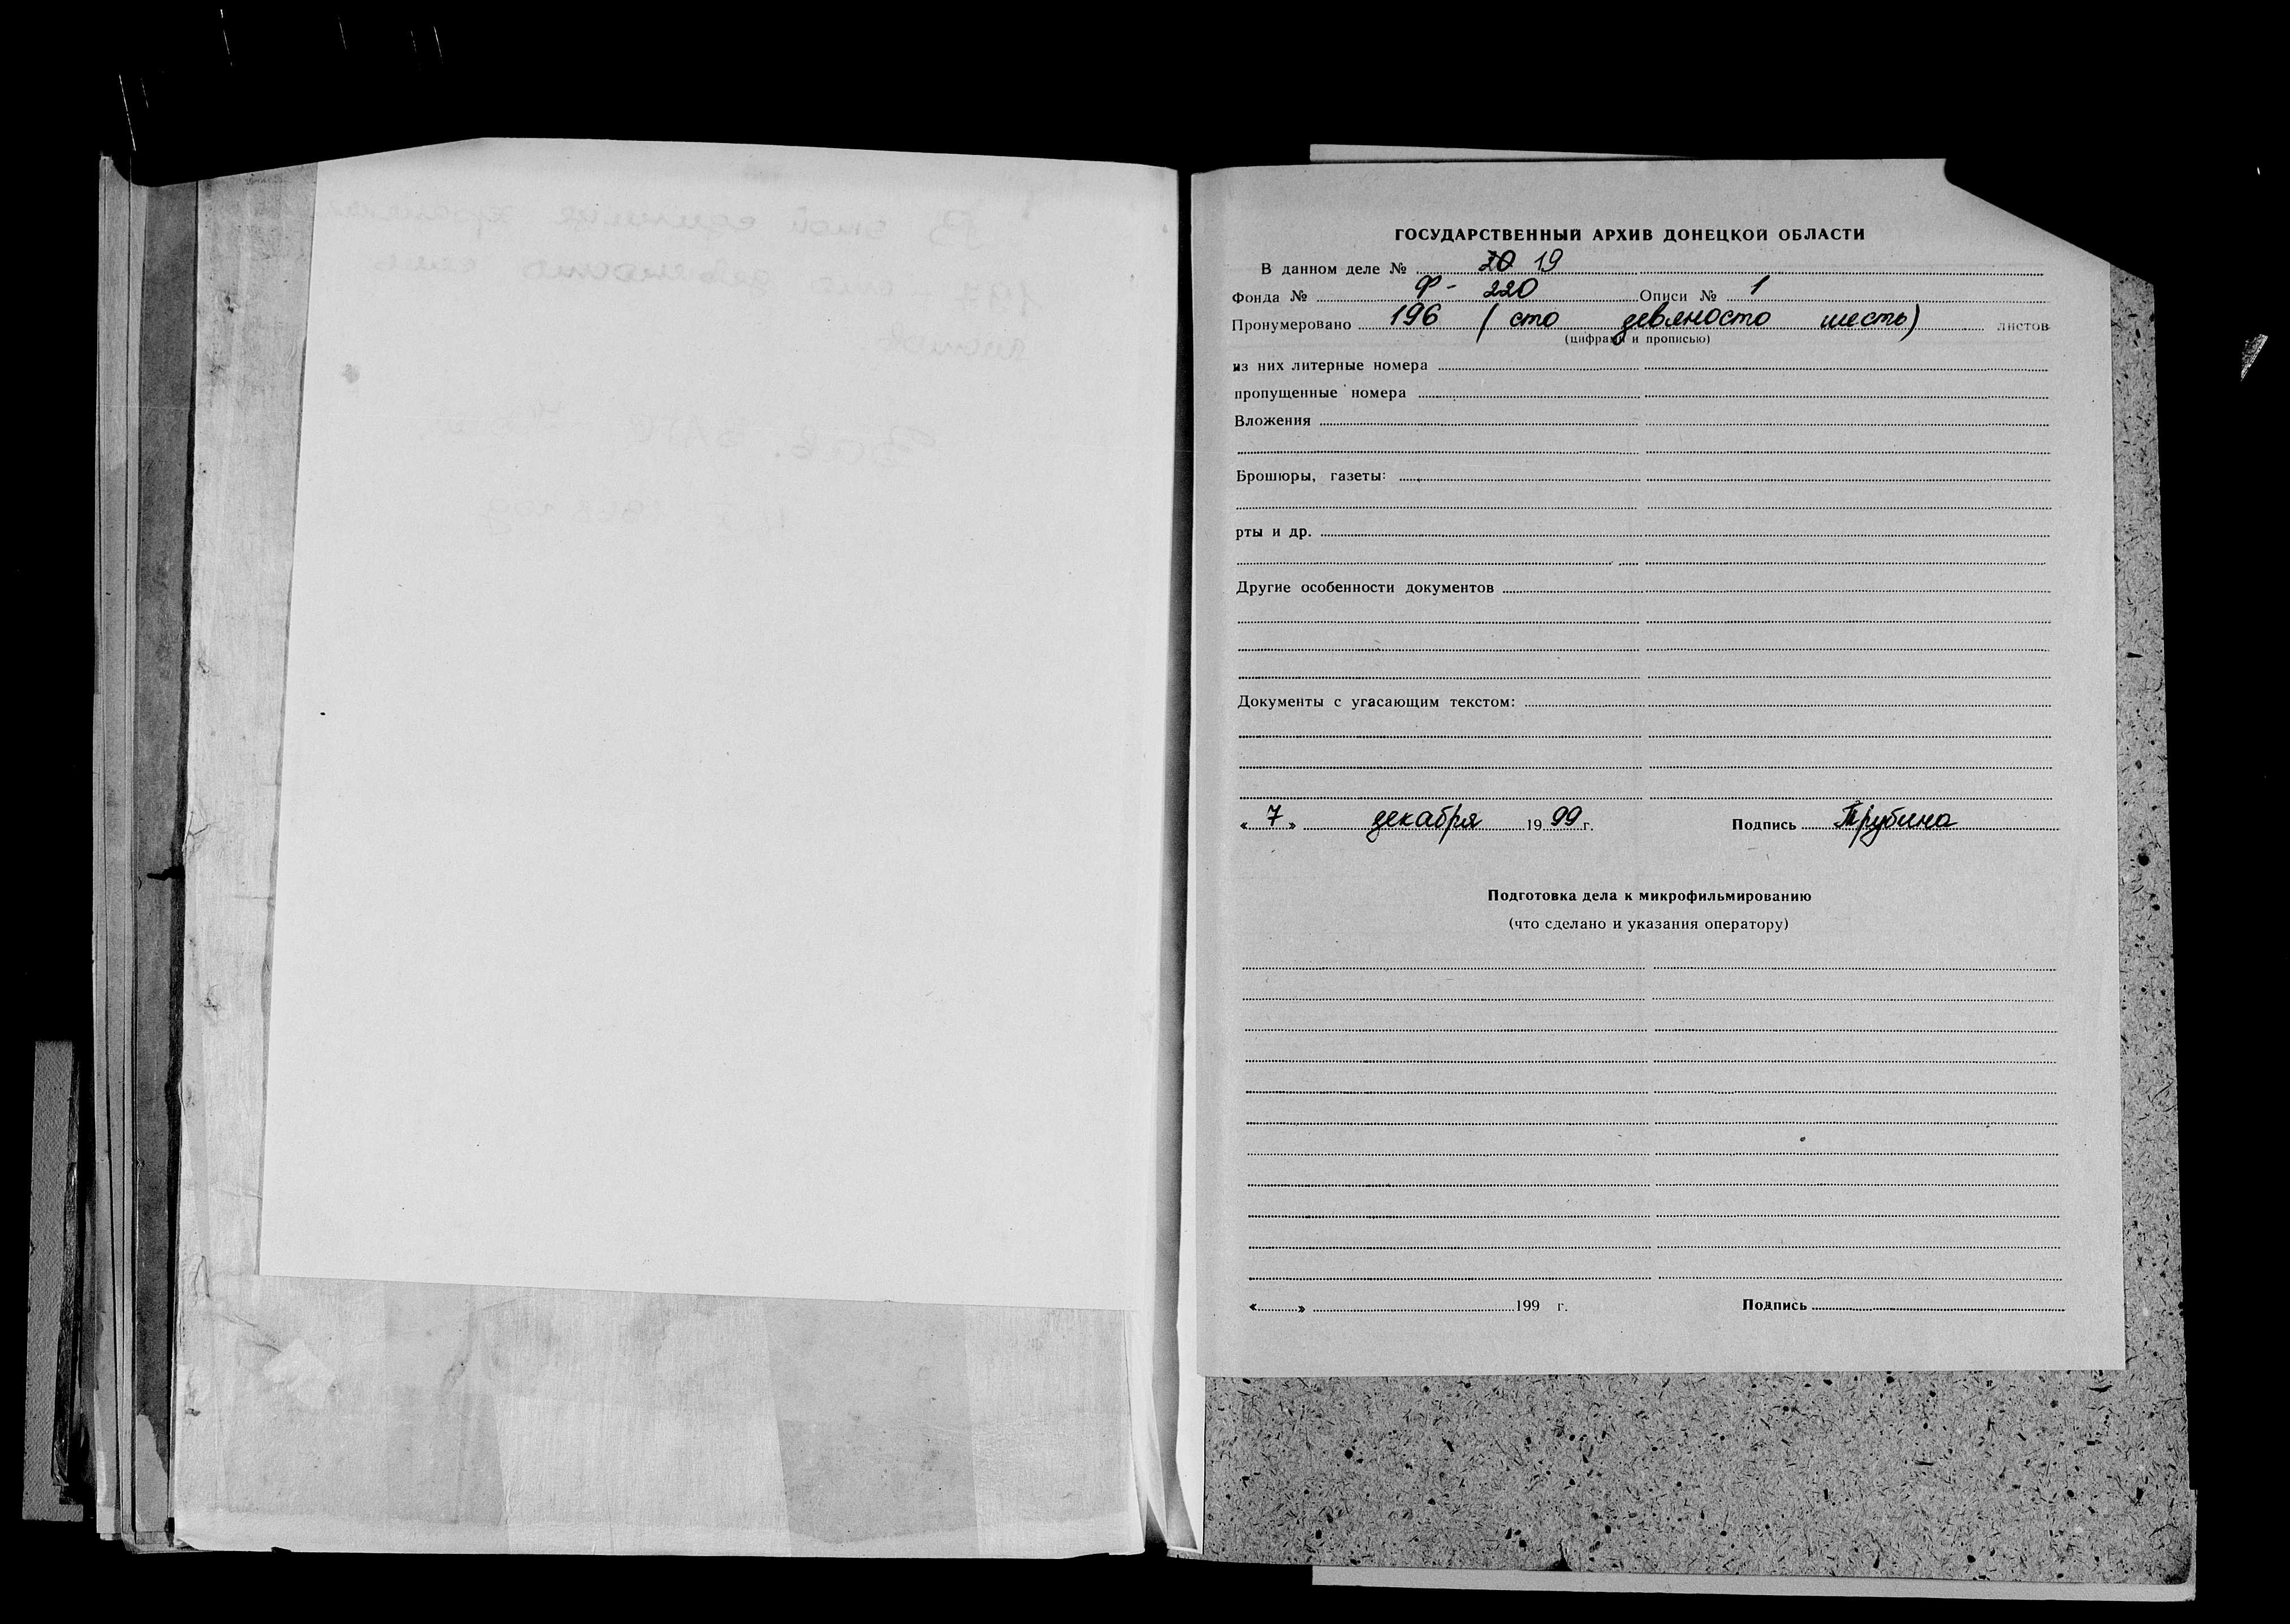 ГОСУДАРСТВЕННЫЙ АРХИВ ДОНЕЦКОЙ ОБЛАСТИ
В данном деле № 19
Фонда № Ф - 220 Описи № 1
Пронумеровано 196 (сто девяносто шесть) листов
(цифрами и прописью)
из них литерные номера
пропущенные номера
Вложения
Брошюры, газеты:
рты и др.
Другие особенности документов
Документы с угасающим текстом:
« 7 » декабря 19 99 г. Подпись Трубина
Подготовка дела к микрофильмированию
(что сделано и указания оператору)
« » 199 г. Подпись